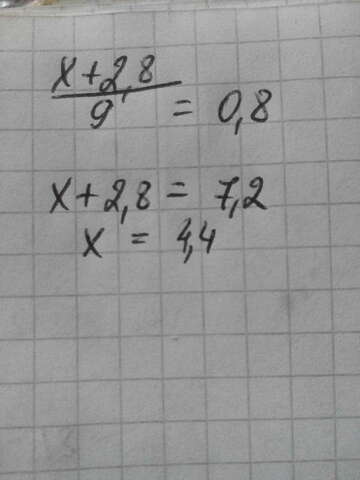 x+2,8
9 = 0,8
x+2,8 = 7,2
x = 4,4